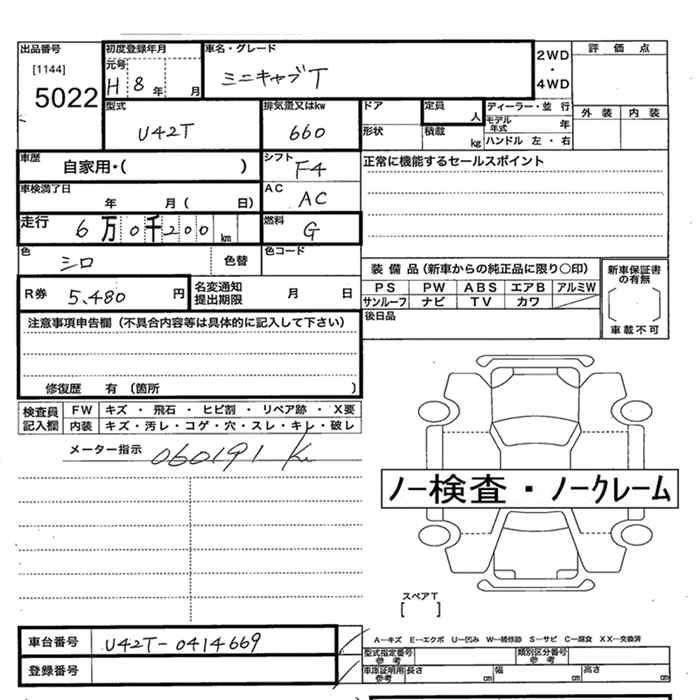 出品番号 初度登録年月 車名・グレード 2WD・4WD 評価点
[1144] 元号
5022 H 8 年 月 ミニキャブT
型式 排気量又はkw ドア 定員 人 ディーラー・並 行 外装 内装
U42T 660 形状 積載 kg モデル年式 年
ハンドル 左・右
車歴 自家用・( ) シフト F4 正常に機能するセールスポイント
車検満了日 年 月( 日) AC AC
走行 6万0千200km 燃料 G
色 シロ 色替 色コード
装備品(新車からの純正品に限り○印) 新車保証書の有無
R券 5.480 円 名変通知提出期限 月 日 PS PW ABS エアB アルミW
サンルーフ ナビ TV カワ
[ ]
車載不可
注意事項申告欄(不具合内容等は具体的に記入して下さい) 後日品
修復歴 有 (箇所 )
検査員記入欄 FW キズ・飛石・ヒビ割・リペア跡・X要
内装 キズ・汚レ・コゲ・穴・スレ・キレ・破レ
メーター指示 060191 Km
ノー検査・ノークレーム
スペアT
[ ]
車台番号 U42T-0414669
A…キズ E…エクボ U…凹み W…補修跡 S…サビ C…腐食 XX…交換済
型式指定番号 参考 類別区分番号 参考
登録番号 車庫証明用 参考 長さ cm 幅 cm 高さ cm